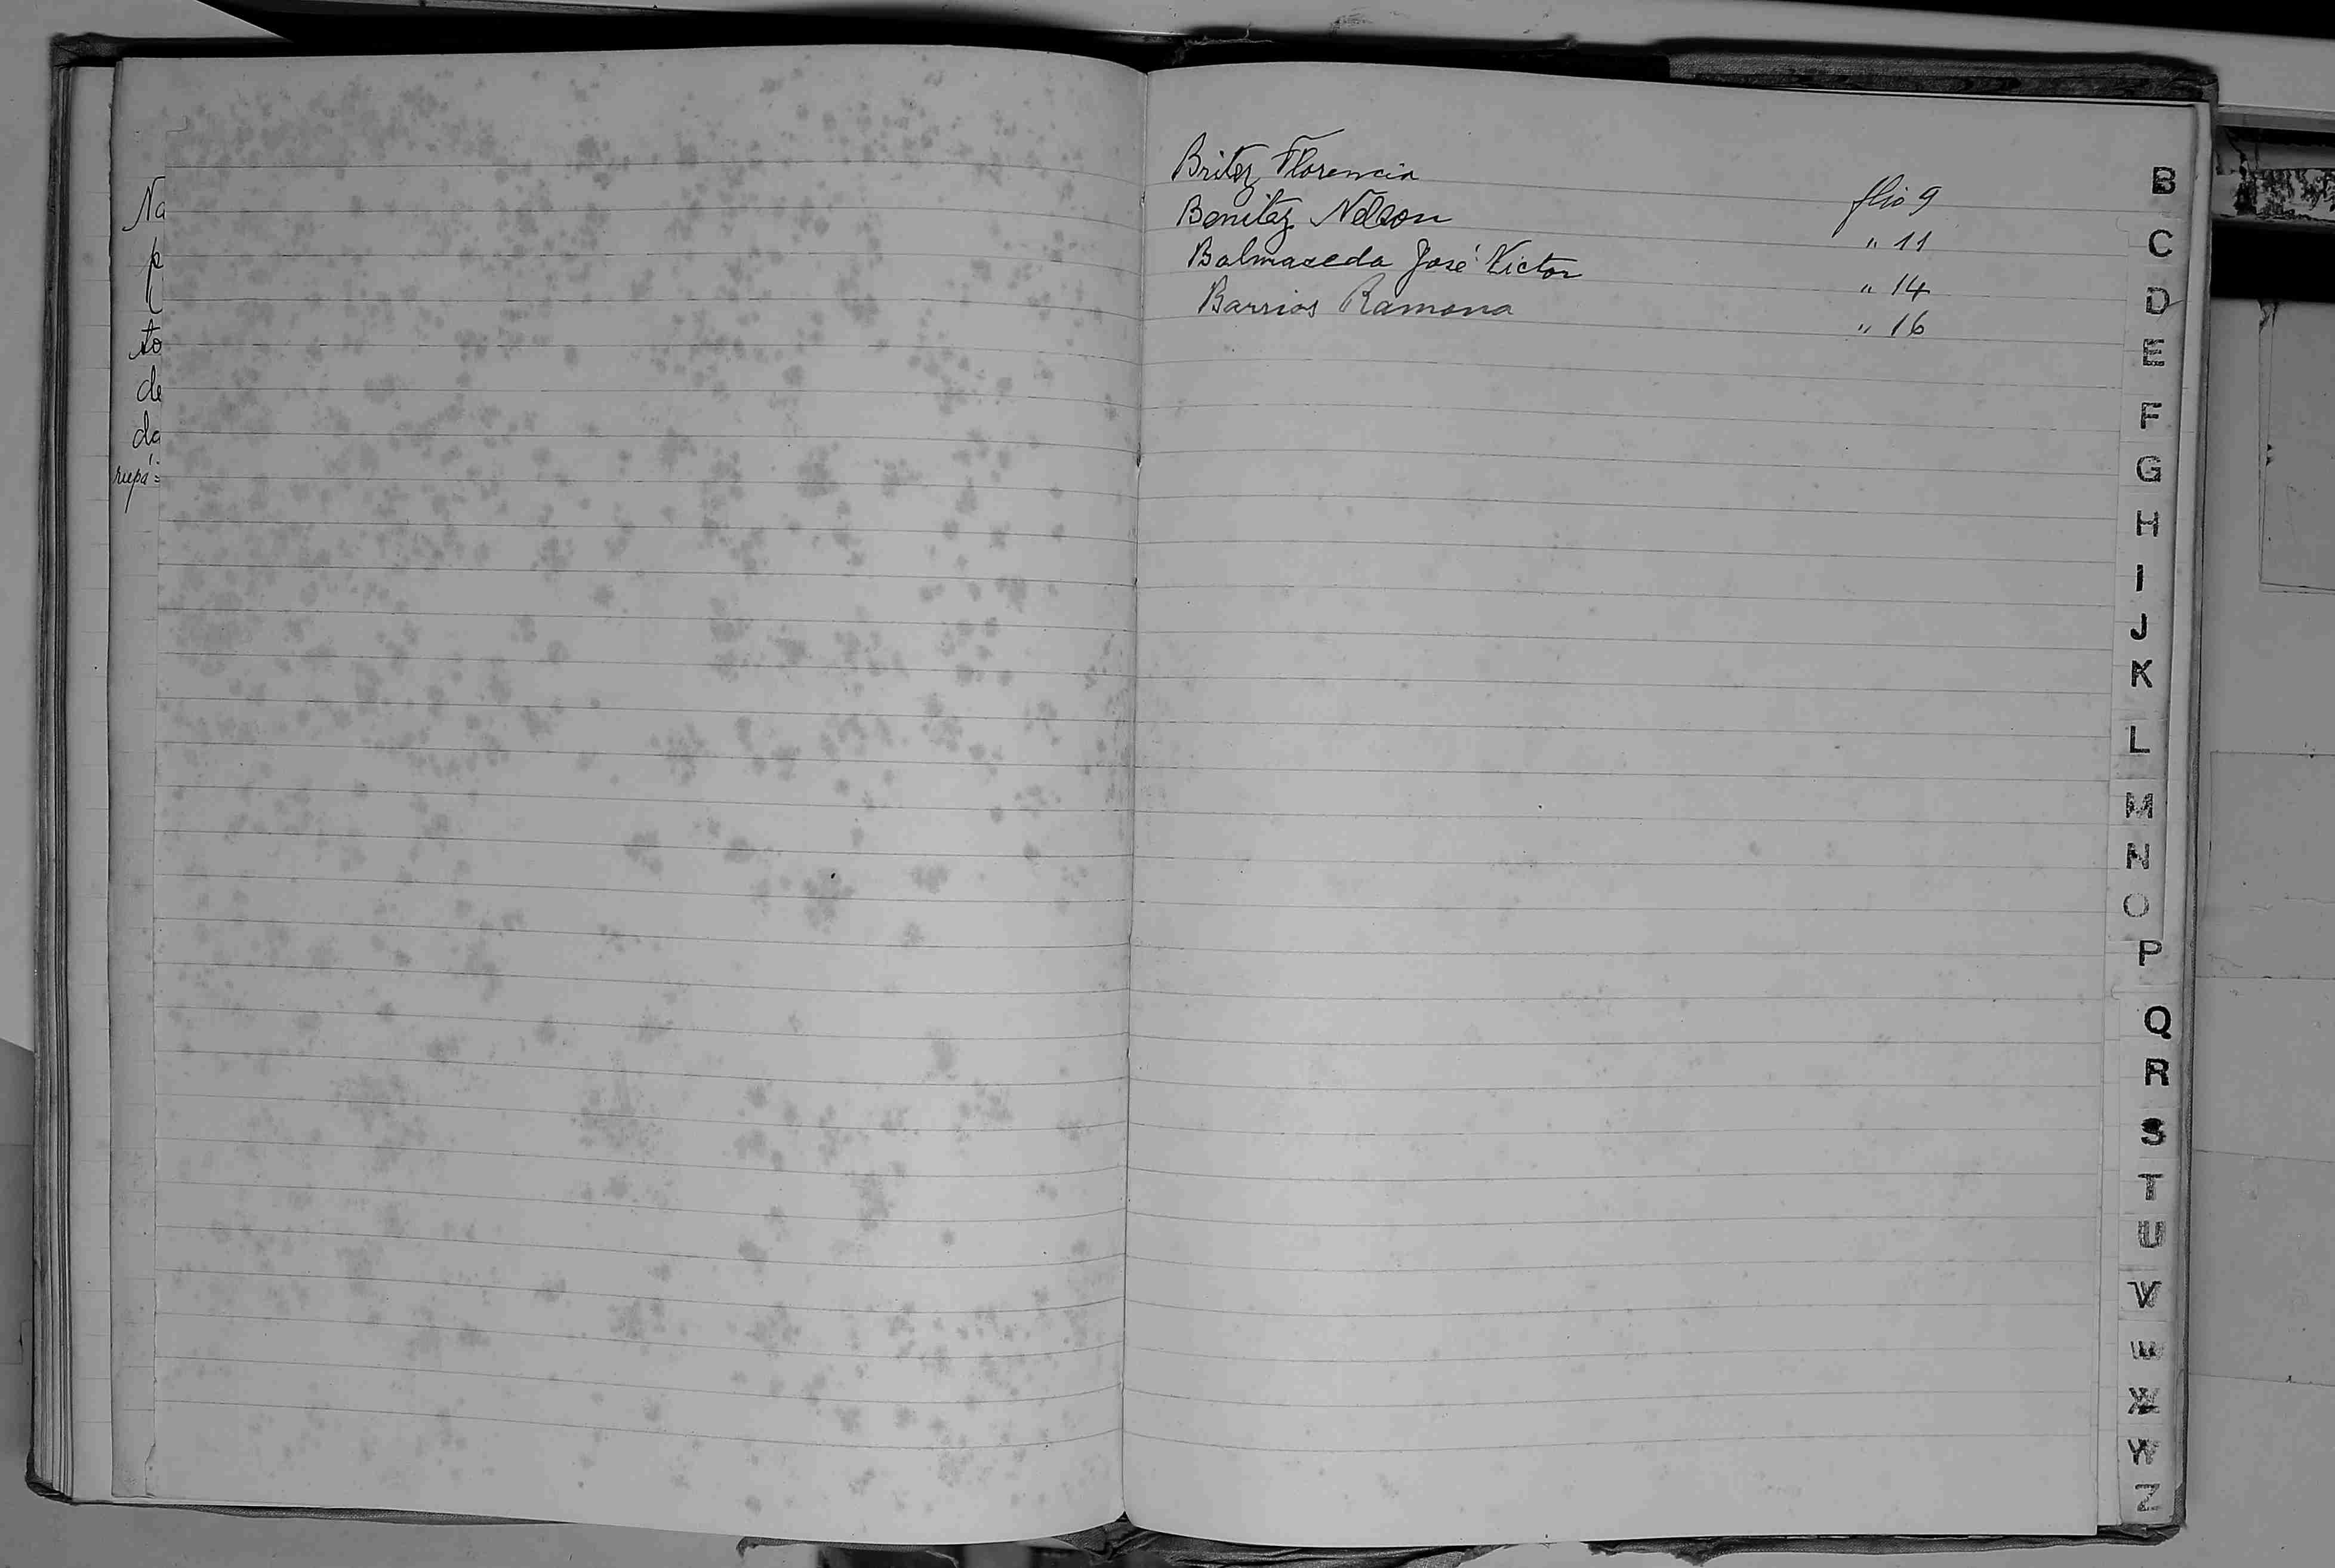 Na
p
to
de
da
Britez Florencia flio 9
Benitez Nelson " 11
Balmaceda José Victor " 14
Barrios Ramona " 16
B
C
D
E
F
G
H
I
J
K
L
M
N
O
P
Q
R
S
T
U
V
W
X
Y
Z